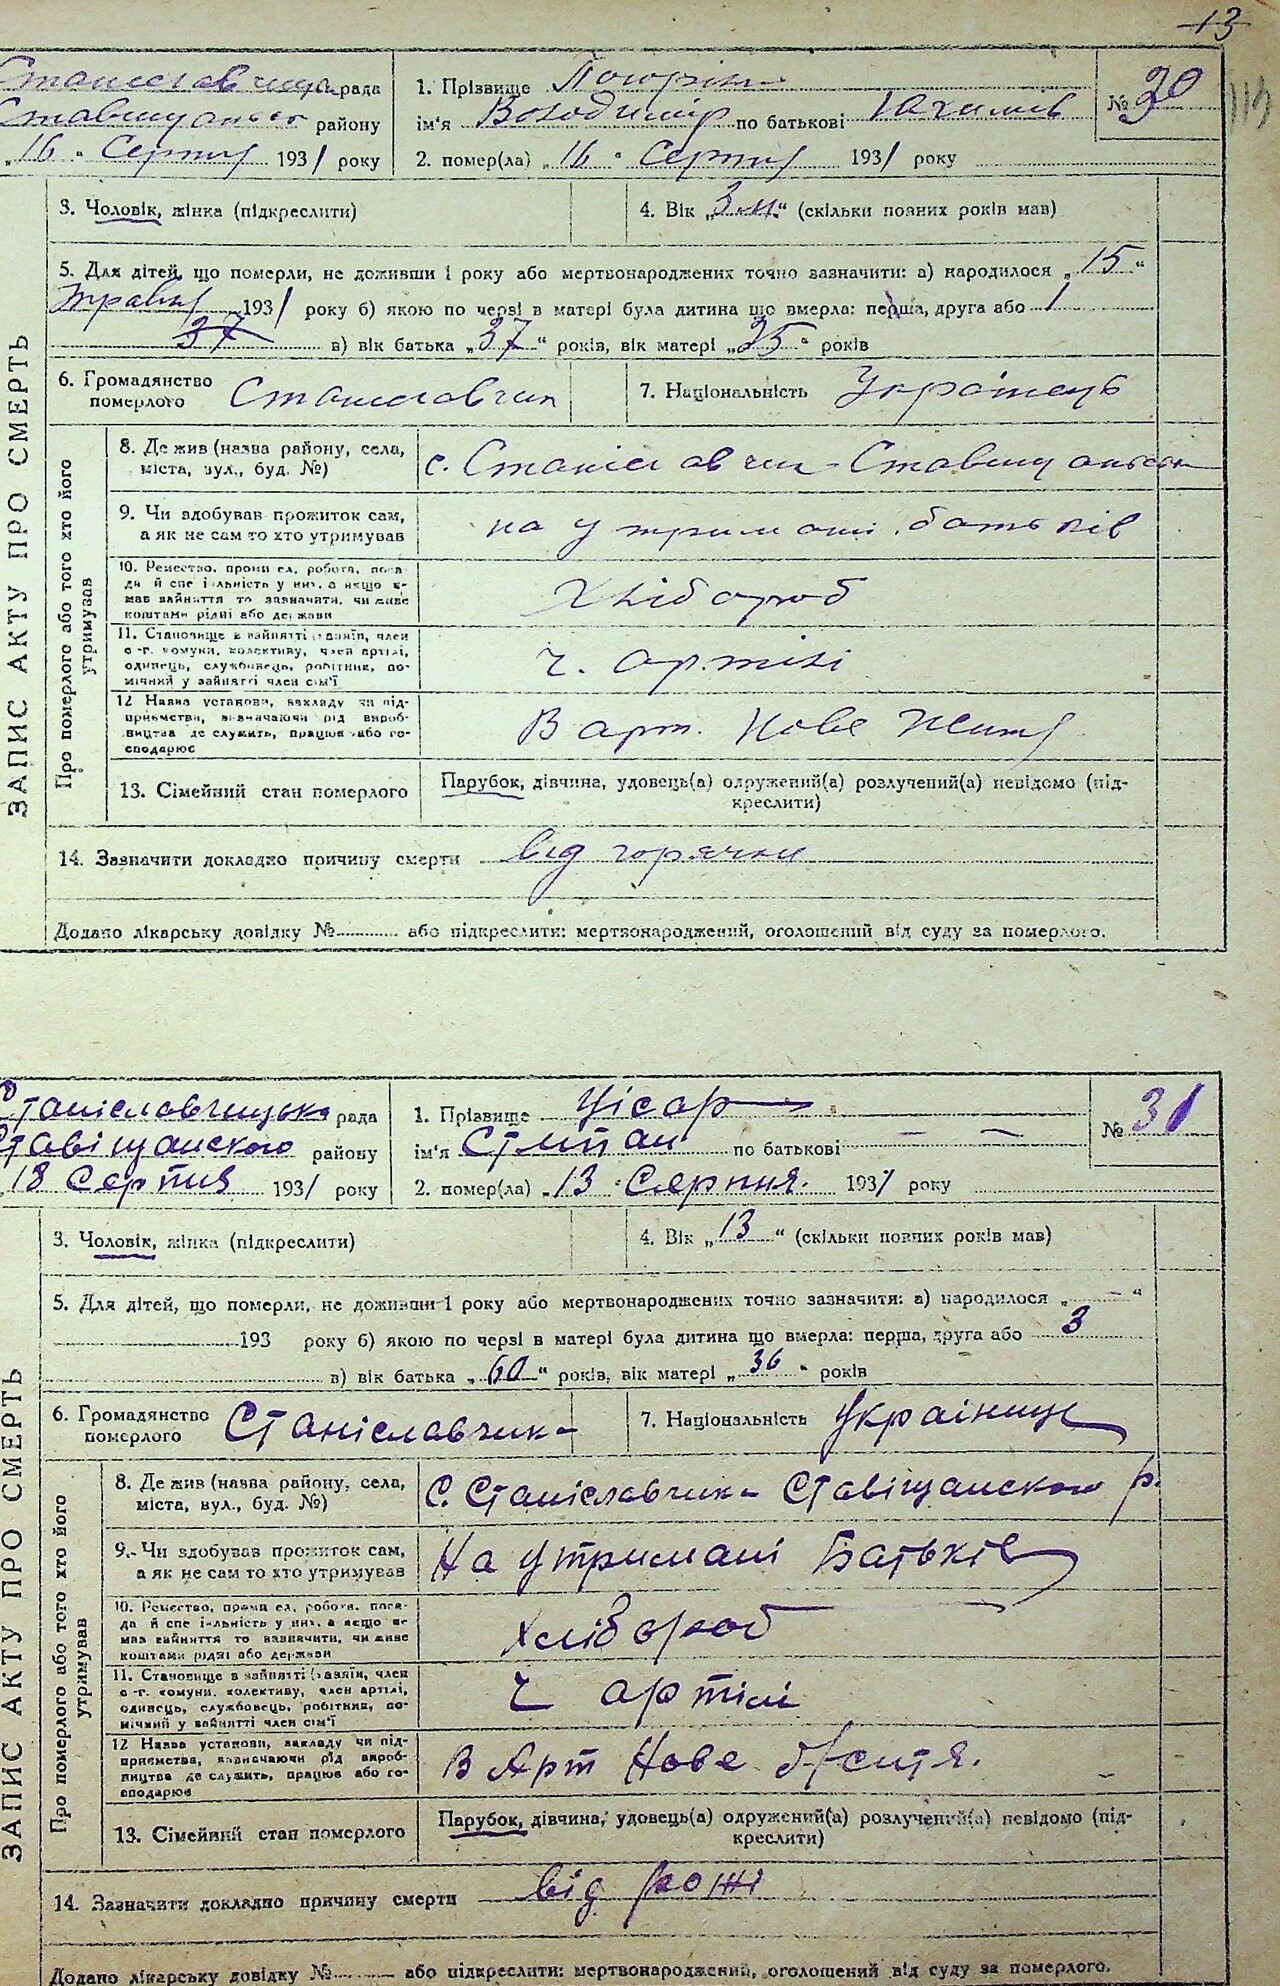 13
113
Станіславчицька рада
Ставищанського району
„16“ Серпня 1931 року
1. Прізвище
ім'я Володимір по батькові Юхимів
2. помер(ла) „16“ Серпня 1931 року
№ 30
ЗАПИС АКТУ ПРО СМЕРТЬ
3. Чоловік, жінка (підкреслити)
4. Вік „3 м.“ (скільки повних років мав)
5. Для дітей, що померли, не доживши 1 року або мертвонароджених точно зазначити: а) народилося „15“
травня 1931 року б) якою по черзі в матері була дитина що вмерла: перша, друга або 1
37 в) вік батька „37“ років, вік матері „35“ років
6. Громадянство
померлого Станиславчик
7. Національність Українець
Про померлого або того хто його
утримував
8. Де жив (назва району, села,
міста, вул., буд. №)
с. Станіславчик Ставищанськ
9. Чи здобував прожиток сам,
а як не сам то хто утримував
на утримані батьків
10. Ремество, промисел, робота, поса-
да й спеціяльність у них, а якщо не
мав зайняття то зазначити, чи живе
коштами рідні або держави
Хлібороб
11. Становище в зайнятті хазяїн, член
с-г. комуни, колективу, член артілі,
одинець, службовець, робітник, по-
мічний у зайнятті член сім'ї
ч. артілі
12 Назва установи, закладу чи під-
приємства, зазначаючи рід вироб-
ництва де служить, працює або го-
сподарює
В арт. Нове Життя
13. Сімейний стан померлого
Парубок, дівчина, удовець(а) одружений(а) розлучений(а) невідомо (під-
креслити)
14. Зазначити докладно причину смерти від горячки
Додано лікарську довідку № або підкреслити: мертвонароджений, оголошений від суду за померлого.
Станіславчицька рада
Ставіщанского району
„18 Серпня 1931 року
1. Прізвище Цісар
ім'я Степан по батькові — —
2. помер(ла) „13“ Серпня 1931 року
№ 31
ЗАПИС АКТУ ПРО СМЕРТЬ
3. Чоловік, жінка (підкреслити)
4. Вік „13“ (скільки повних років мав)
5. Для дітей, що померли, не доживши 1 року або мертвонароджених точно зазначити: а) народилося „—“
193 року б) якою по черзі в матері була дитина що вмерла: перша, друга або 3
в) вік батька „60“ років, вік матері „36“ років
6. Громадянство
померлого Станіславчик
7. Національність Українець
Про померлого або того хто його
утримував
8. Де жив (назва району, села,
міста, вул., буд. №)
С. Станіславчик Ставіщанского р.
9. Чи здобував прожиток сам,
а як не сам то хто утримував
На утримані Батьків
10. Ремество, промисел, робота, поса-
да й спеціяльність у них, а якщо не
мав зайняття то зазначити, чи живе
коштами рідні або держави
Хлібороб
11. Становище в зайнятті хазяїн, член
с-г. комуни, колективу, член артілі,
одинець, службовець, робітник, по-
мічний у зайнятті член сім'ї
Ч артілі
12 Назва установи, закладу чи під-
приємства, зазначаючи рід вироб-
ництва де служить, працює або го-
сподарює
В Арт Нове Життя.
13. Сімейний стан померлого
Парубок, дівчина, удовець(а) одружений(а) розлучений(а) невідомо (під-
креслити)
14. Зазначити докладно причину смерти від рожі
Додано лікарську довідку № або підкреслити: мертвонароджений, оголошений від суду за померлого.